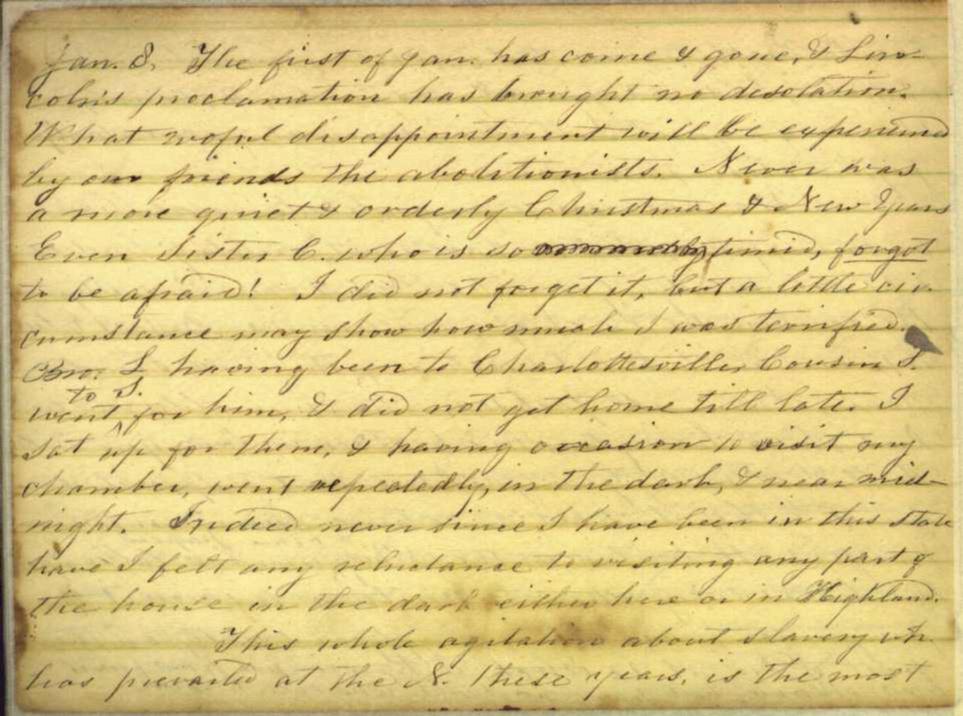 Jan. 8. The first of Jan. has come & gone, & Lin-
coln's proclamation has brought no desolation.
What woful disappointment will be experienced
by our friends the abolitionists. Never was
a more quiet & orderly Christmas & New Years
Even Sister C. who is so timid, forgot
to be afraid! I did not forget it, but a little cir-
cumstance may show how much I was terrified.
Bro. L. having been to Charlottesville, Cousin S.
to S.
went for him, & did not get home till late. I
sat up for them, & having occasion to visit my
chamber, went repeatedly, in the dark, & near mid-
night. Indeed never since I have been in this state
have I felt any reluctance to visiting any part of
the house in the dark either here or in Highland.
This whole agitation about slavery wh.
has prevailed at the N. these years, is the most